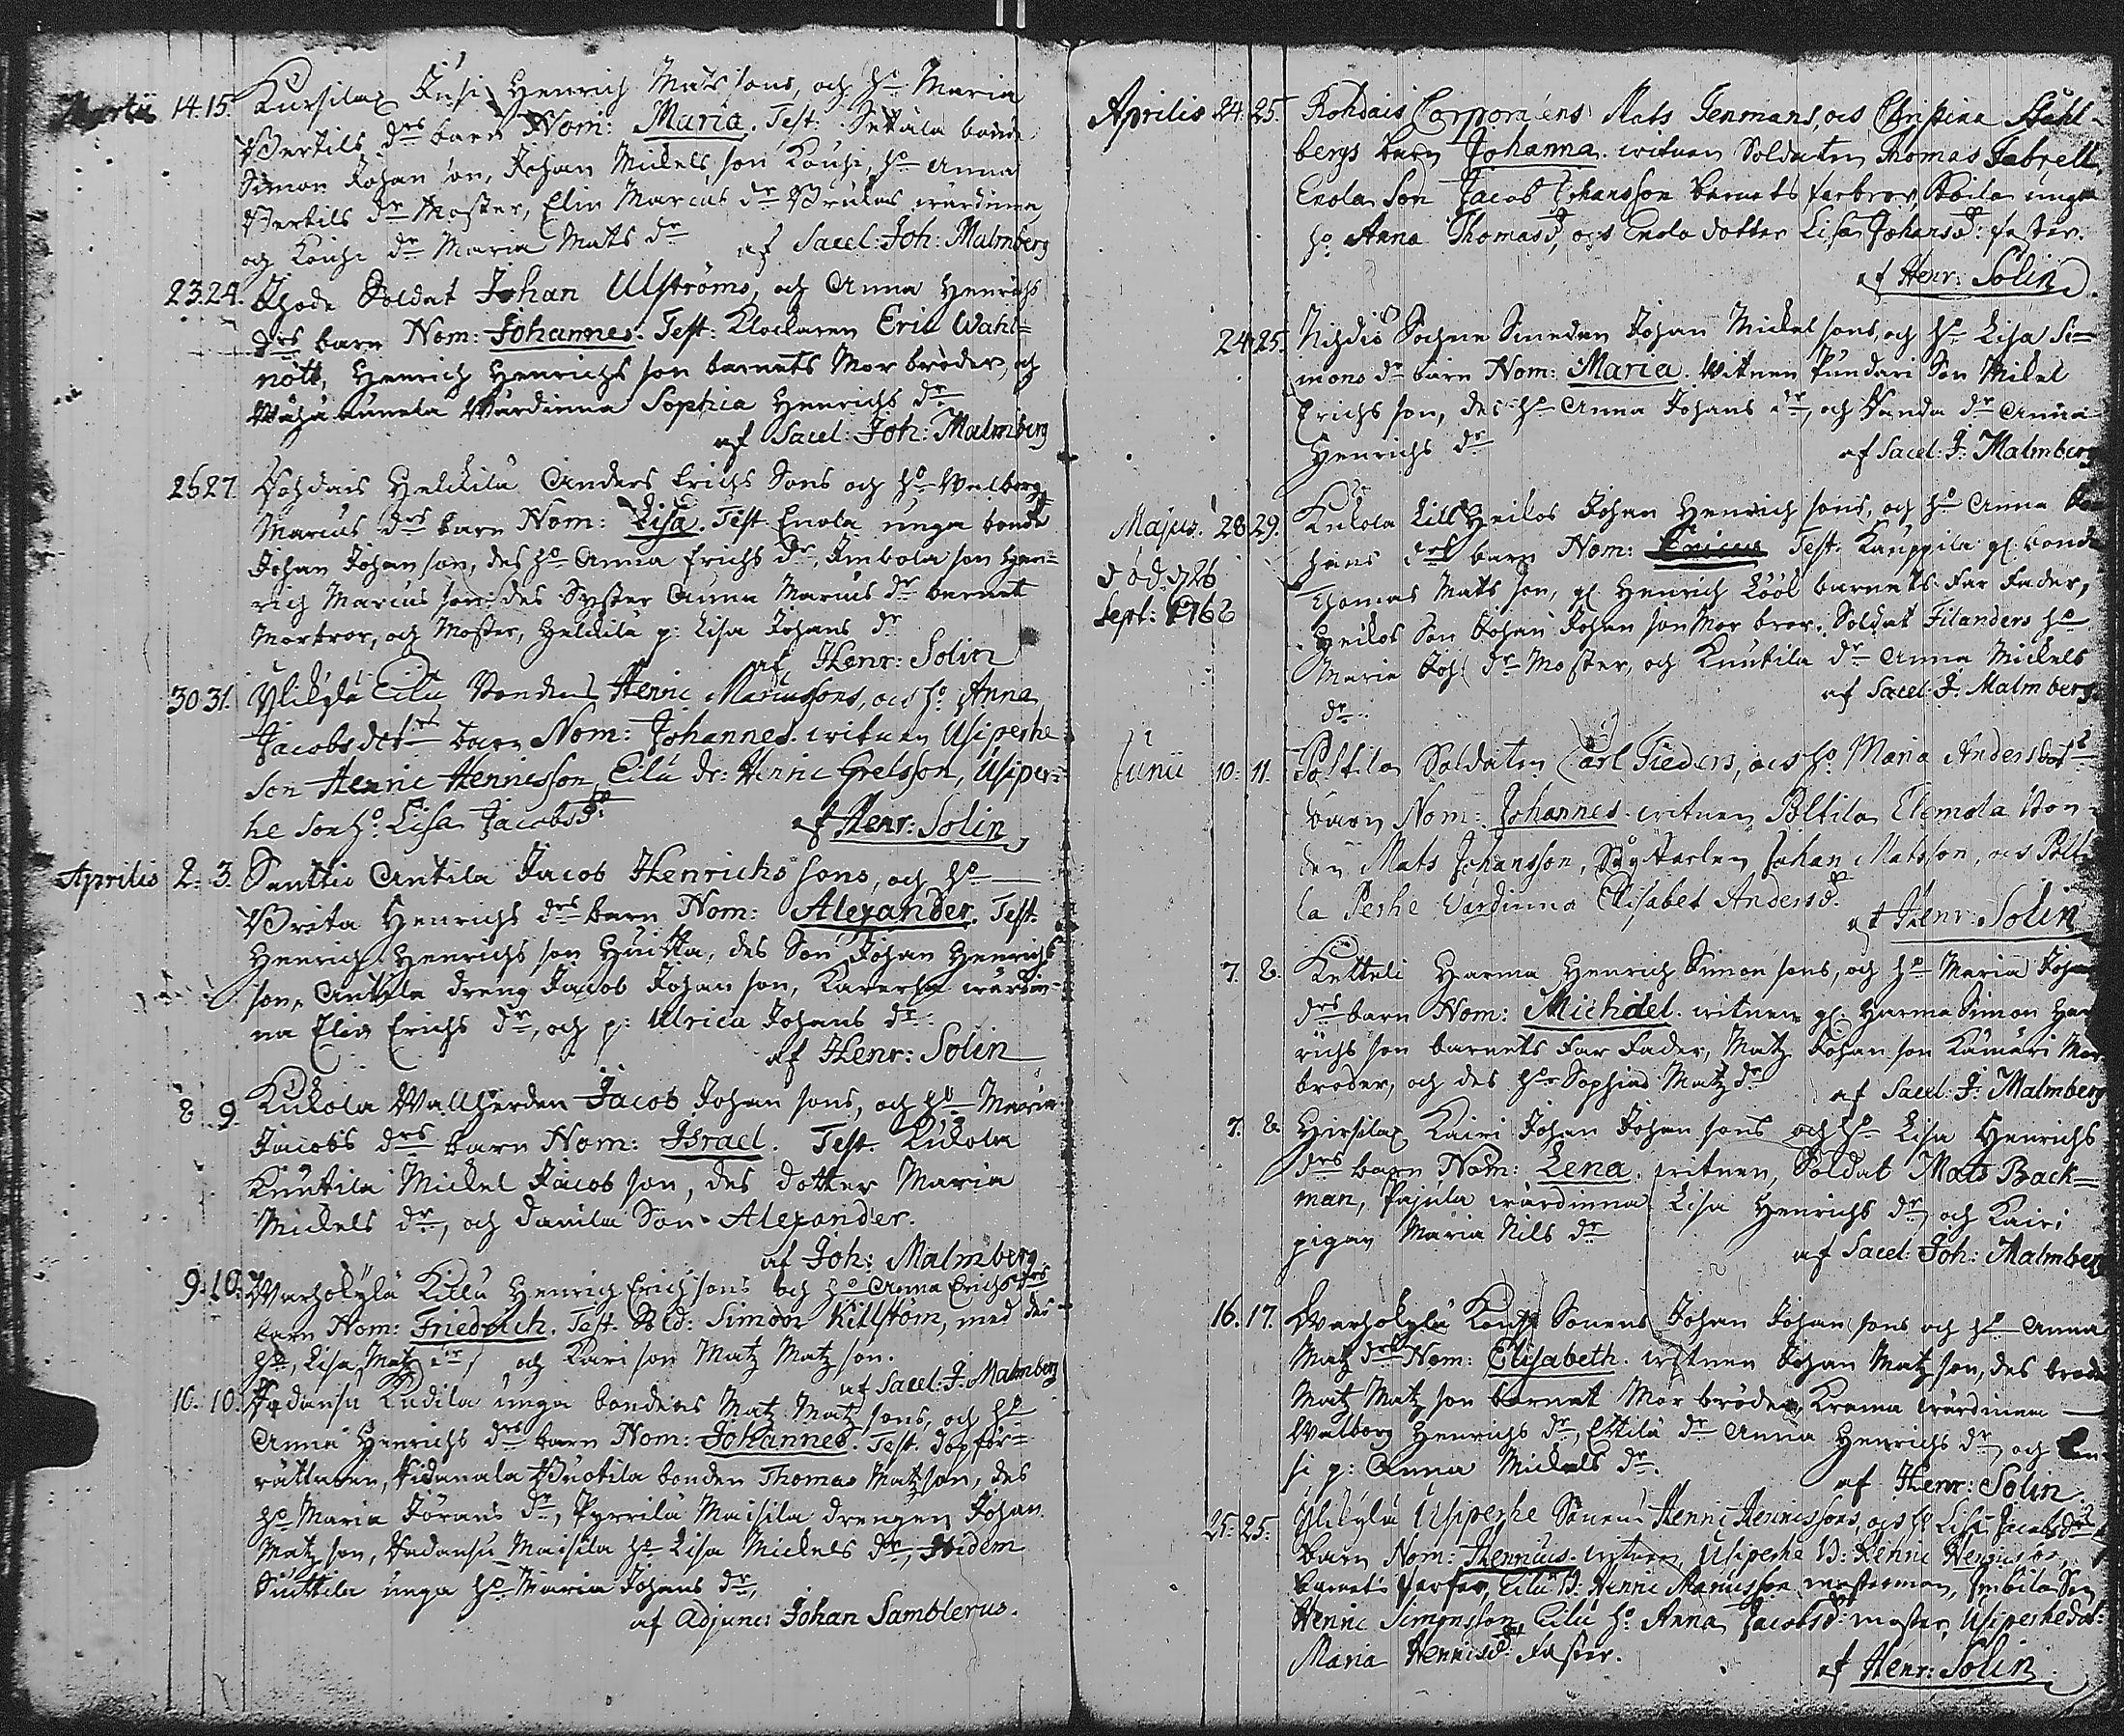 Martii 14. 15. Kursilax Jusi Henrich Mats sons, och h:o Maria
Bertils drs barn Nom: Maria. Test: Setälä bonde
Simon Johan son, Johan Mickels son Kouhi, h:o Anna
Bertils dr Moster, Elin Marcus dr värdinna
och Kouhi dr Maria Mats dr af Sacel: Joh: Malmberg
23. 24. Soldat Johan Ulströms, och Anna Henrichs
drs barn Nom: Johannes. Test: Klockaren Eric Wahl=
nott, Henrich Henrichs son barnets Mor broder, och
värdinna Sophia Henrichs dr
af Sacel: Joh: Malmberg
26 27. Heickilä Anders Erichs Sons och h:o Walborg
Marcus drs barn Nom: Lisa. Test: Enola unga bonde
Johan Johan son, des h:o Anna Erichs dr, Imbola son Hen=
rich Marcus son, des Syster Anna Marcus dr barnet
Morbror, och Moster, Heickilä p: Lisa Johans dr
af Henr: Solin
30 31. Ylikylä Eilu Bondens Henric Marcussons, och h:o Anna
Jacobs dotrs barn Nom: Johannes. witnen Usiperhe
Son Henric Henricsson, Eilu dr: Henric Grelsson, Usiper=
he son h:o Lisa Jacobsd:
af Henr: Solin
Aprilis 2. 3. Santtio Antila Jacob Henrichs sons, och h:o
Brita Henrichs drs barn Nom: Alexander. Test:
Henrich Henrichs son Huitta, des Son Johan Henrichs
son, Antila dreng Jacob Johan son, wärdin=
na Elin Erichs dr, och p: Ulrica Johans dr:
af Henr: Solin
8. 9. Kukola Wallherden Jacob Johan sons, och h:o Maria
Jacobs drs barn Nom: Israel. Test. Kukola
Knutila Mickel Jacob son, des dotter Maria
Mickels dr, och Danila Son Alexander.
af Joh: Malmberg
9. 10. Warhokylä Killu Henrich Erich sons och h:o Anna Erichs drs
barn Nom: Friedrich. Test. Sold: Simon Killström, med des
h:o, Lisa Matz dr, och Kari son Matz Matz son.
af Sacel: J. Malmberg
10. 10. unga bondens Matz Matz sons, och h:o
Anna Henrichs drs barn Nom: Johannes. Test. dopför=
rättaren, bonden Thomas Matz son, des
h:o Maria Jörans dr, Pyrrilä Maisila drengen Johan
Matz son, Maisila h:o Lisa Mickels dr, Ibidem
Suttila unga h:o Maria Johans dr,
af Adjunc: Johan Samblerus.
Aprilis 24. 25. Rohdais Corporalens Mats Jenmans, och Christina Stahl=
bergs barn Johanna. witnen Soldaten Thomas Fabrell,
Enola Son Jacob Johansson barnets farbror, unga
h:o Anna Thomasd, och Enola dotter Lisa Johansd: faster.
af Henr: Solin
24 25. Sockne Smeden Johan Mickel sons, och h:o Lisa Si=
mons dr barn Nom: Maria. Witnen Pundari Son Mikel
Erichs son, des h:o Anna Johans dr, och dr Anna
Henrichs dr
af Sacel: J: Malmberg
Majus. 28 29. Kukola Lill Heikos Johan Henrich sons, och h:o Anna
hans drs barn Nom: Ericus Test. Kauppila gl. bonde
död d 26 Thomas Mats son, gl. Henrich barnets Far Fader,
Sept: 1766 Heikos Son Johan Johan son Mor bror. Soldat Filanders h:o
Maria Joh: dr Moster, och Knutila dr Anna Mickels
dr.. af Sacel: J: Malmberg
Junii 10. 11. Poltila Soldaten Carl Fieders, och h:o Maria Andersdotr
barn Nom: Johannes. witnen Poltila Elemola Bon=
den Mats Johansson, Johan Matsson, och Polti=
la Perhe Värdinna Elisabet Andersd.
af Henr: Solin
7. 8. Ketteli Harma Henrich Simon sons, och h:o Maria Johans
drs barn Nom: Michael. witnen gl. Harma Simon Hen
richs son barnets Far Fader, Matz Johan son Kamäri Mor
broder, och des h:o Sophia Matz dr
af Sacel: J: Malmberg
7. 8. Hirsilax Kairi Johan Johan sons och h:o Lisa Henrichs
drs barn Nom: Lena. witnen, Soldat Mats Back=
man, Pajula wärdinna Lisa Henrichs dr, och Kairi
pigan Maria Nils dr
af Sacel: Joh: Malmberg
16. 17. Warhokylä Sonens Johan Johan sons och h:o Anna
Matz drs Nom: Elisabeth. witnen Johan Matz son, des broder
Matz Matz son barnet Mor bröder, Krama wärdinna
Walborg Henrichs dr, Ettilä dr Anna Henrichs dr, och
si p: Anna Mickels dr.
af Henr: Solin.
25. 25. Ylikylä Usiperhe Sonens Henric Henricssons, och h:o Lisa Jacobsdotrs
barn Nom: Henricus. witnen, Usiperhe B: Henric Henricsson,
barnets farfar, Eilu B: Henric Marcusson mosterman, Imbila Son
Henric Simonsson Eilu h:o Anna Jacobsd: moster, Usiperhe dot:
Maria Henricsd: Faster.
af Henr: Solin.